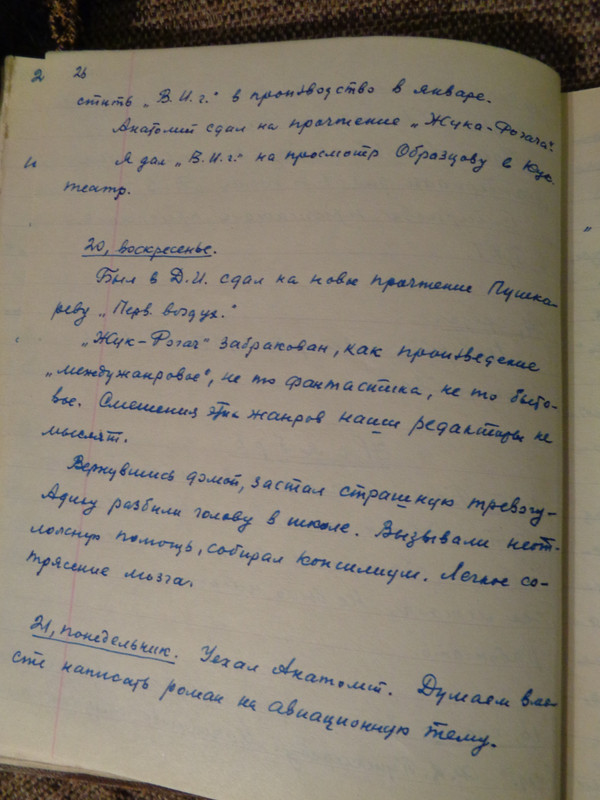 2 26
стить „В.И.г." в производство в январе.
Анатолий сдал на прочтение „Жука-Рогача".
Я дал „В.И.г." на просмотр Образцову в Кук.
театр.
20, воскресенье.
Был в Д.И. сдал на новое прочтение Пушка-
реву „Перв. воздух."
„Жук-Рогач" забракован, как произведение
„междужанровое", не то фантастика, не то быто-
вое. Смешения жанров наши редакторы не
мыслят.
Вернувшись домой, застал страшную тревогу –
Адику разбили голову в школе. Вызывали неот-
ложную помощь, собирал консилиум. Легкое со-
трясение мозга.
21, понедельник. Уехал Анатолий. Думаем вме-
сте написать роман на авиационную тему.